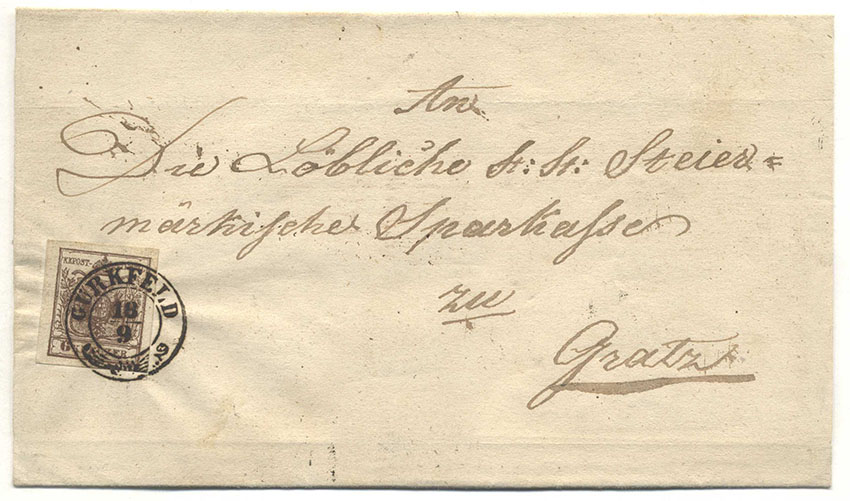 An
Die Löbliche k: k: Steier=
märkische Sparkasse
zu
Gratz
KKPOST-
GURKFELD
18
9
6